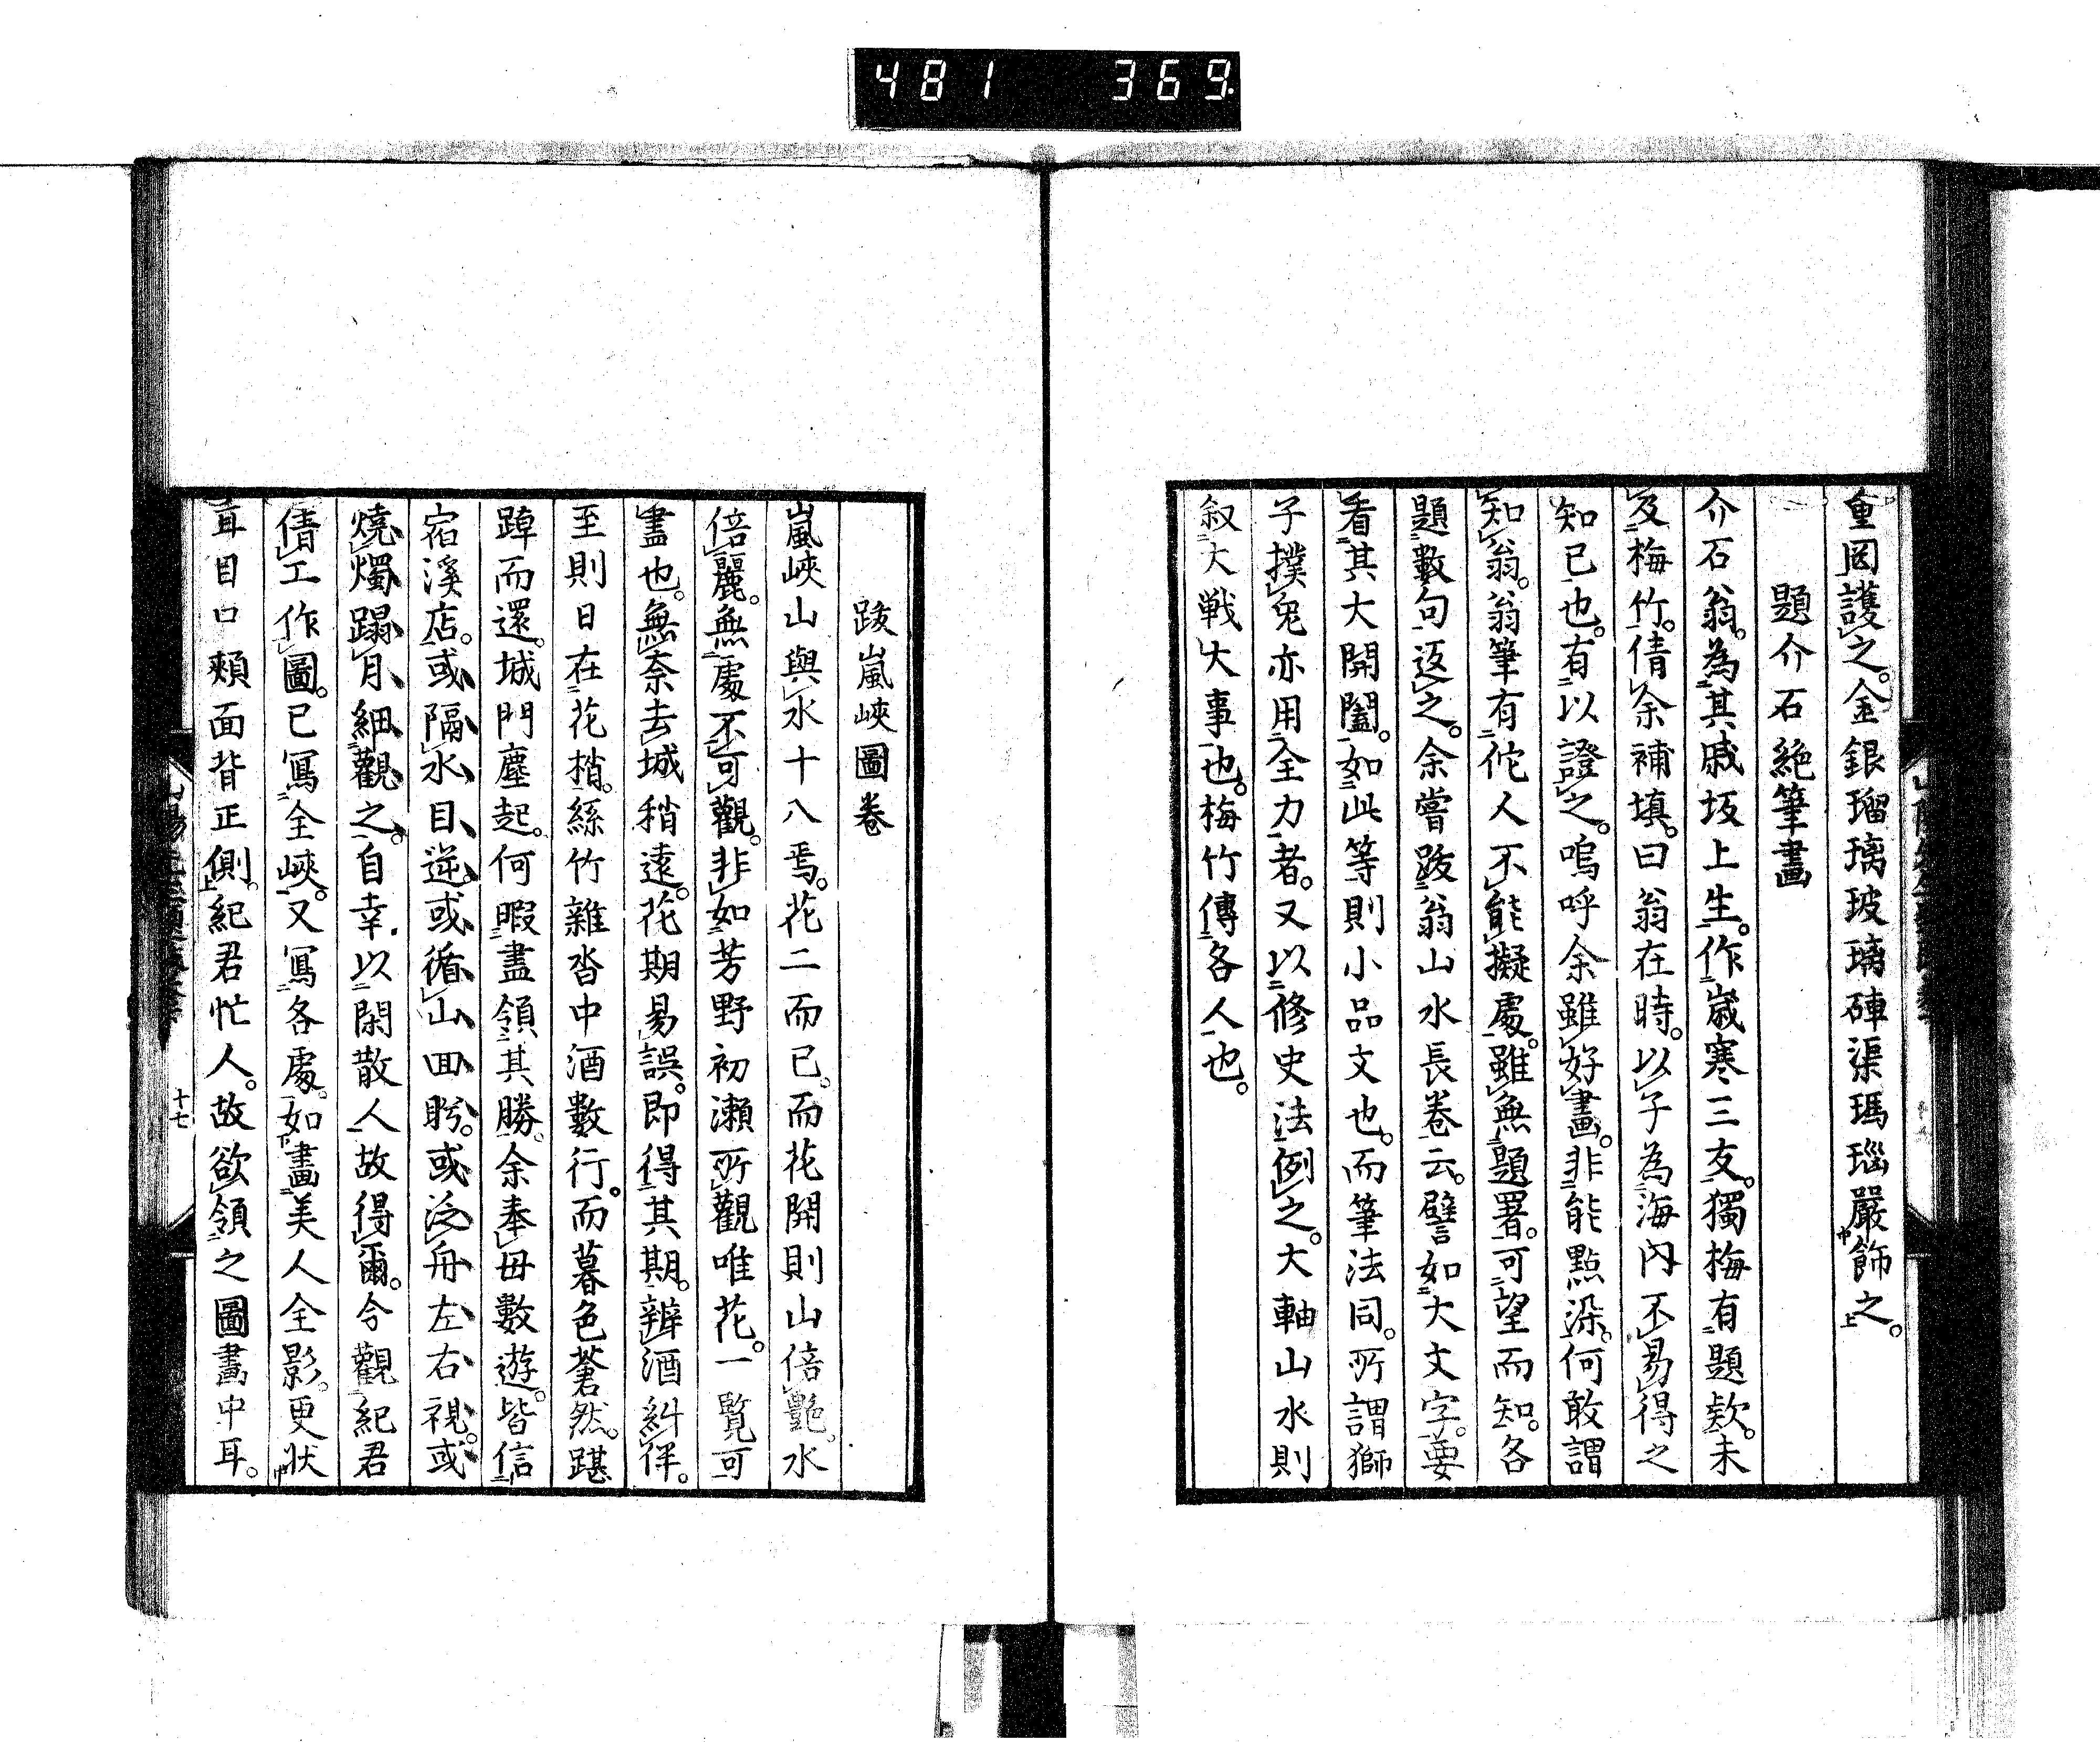 481 369
重図護之。金銀瑠璃玻璃硨渠瑪瑙嚴飾之。
題介石絶筆畫
介石翁。為其戚坂上生。作歳寒三友。獨梅有題欵。未
及梅竹。倩余補填。曰翁在時。以子為海内不易得之
知已也。有以證之。嗚呼余雖好畫。非能點染。何敢謂
知翁。翁筆有佗人不能擬處。雖無題署。可望而知。各
題數句返之。余嘗跋翁山水長卷云。譬如大文字。要
看其大開闔。如此等則小品文也。而筆法同。所謂獅
子撲兔亦用全力者。又以修史法例之。大軸山水則
叙大戦大事也。梅竹傳各人也。
跋嵐峽圖卷
嵐峽山與水十八焉。花二而已。而花開則山倍艶。水
倍麗。無處不可觀。非如芳野初瀬所觀唯花。一覧可
盡也。無奈去城稍遠。花期易誤。即得其期。辨酒糾伴。
至則日在花梢。絲竹雜沓中酒數行。而暮色蒼然。踸
踔而還。城門塵起。何暇盡領其勝。余奉母數遊。皆信
宿溪店。或隔水目逆。或循山回眄。或泛舟左右視。或
燒燭蹋月。細觀之。自幸以閑散人故得爾。今觀紀君
倩工作圖。已寫全峽。又寫各處。如畫美人全影。更状
耳目口頰面背正側。紀君忙人。故欲領之圖畫中耳。
十七